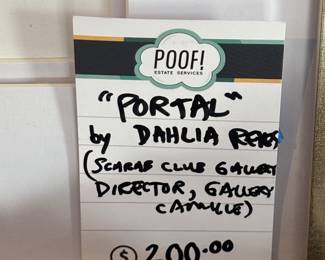 POOF!
ESTATE SERVICES
"PORTAL"
by DAHLIA REYES
(SCARAB CLUB GALLERY
DIRECTOR, GALLERY
CAMILLE)
$ 200.00